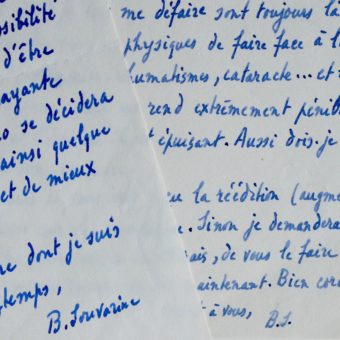 sibilité
d'être
ayante
o se décidera
ainsi quelque
et de mieux
re dont je suis
temps,
B. Souvarine
me défaire sont toujours là
physiques de faire face à l
humatismes, cataracte... et
rend extrêmement pénib
t épuisant. Aussi dois-je
u la réédition (augme
e. Sinon je demandera
ais, de vous le faire
maintenant. Bien cor
t à vous,
B.S.